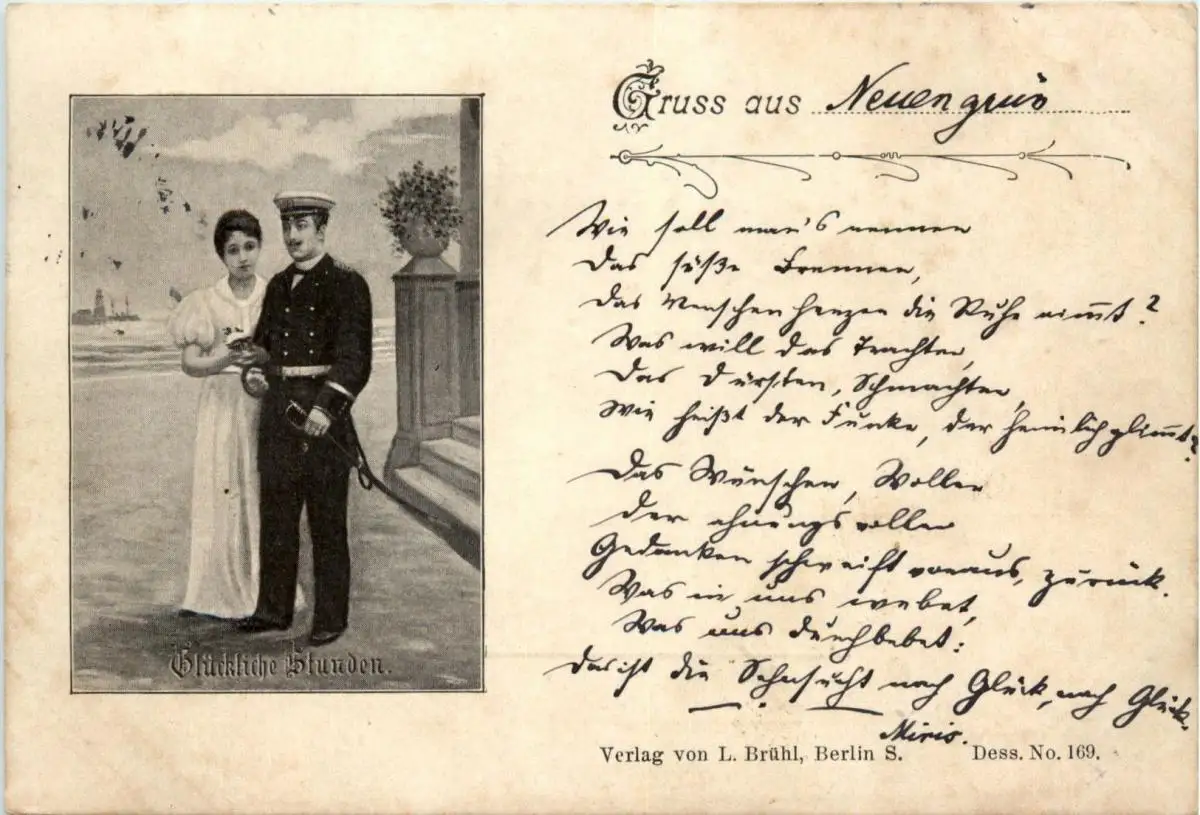 Gruss aus Neuengrün
Wie soll man's nennen
Das süße Brennen,
Das Menschenherzen die Ruhe nimmt?
Was will das Trachten,
Das Dürsten, Schmachten,
Wie heißt der Funke, der heimlich glimmt?
Das Wünschen, Wollen
Der ahnungsvollen
Gedanken schweift voraus, zurück.
Was in uns webet,
Was uns durchbebet:
Das ist die Sehnsucht nach Glück, nach Glück.
Miris.
Glückliche Stunden.
Verlag von L. Brühl, Berlin S. Dess. No. 169.